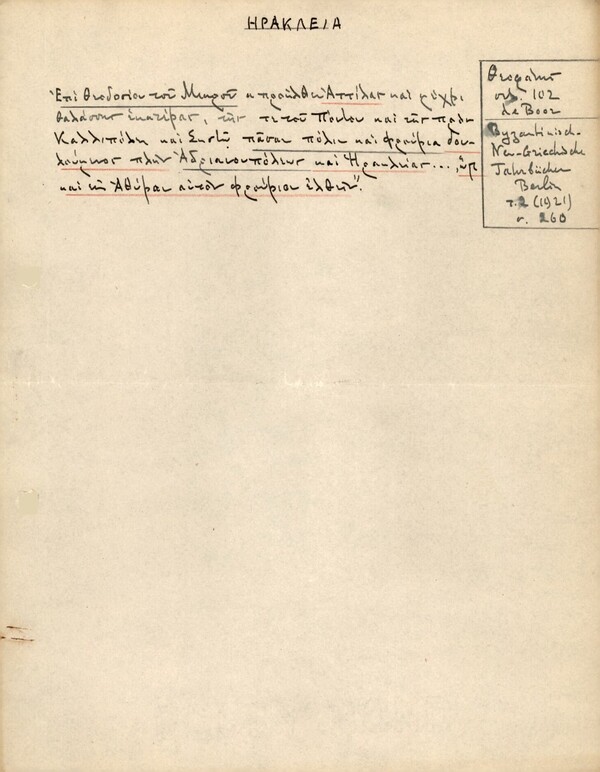 ΗΡΑΚΛΕΙΑ
Ἐπὶ Θεοδοσίου τοῦ Μικροῦ "προῆλθεν Ἀττίλας καὶ μέχρι
θαλάσσης ἑκατέρας, τῆς τε τοῦ Πόντου καὶ τῆς πρὸς
Καλλιπόλει καὶ Σηστῷ πᾶσαν πόλιν καὶ φρούρια δου-
λούμενος πλὴν Ἀδριανουπόλεως καὶ Ἡρακλείας...,
καὶ εἰς Ἀθύραν αὐτὸν φρούριον ἐλθεῖν".
Θεοφάνης
σελ. 102
de Boor
Byzantinisch-
Neu-Griechische
Jahrbücher
Berlin
τ. 2 (1921)
σ. 260